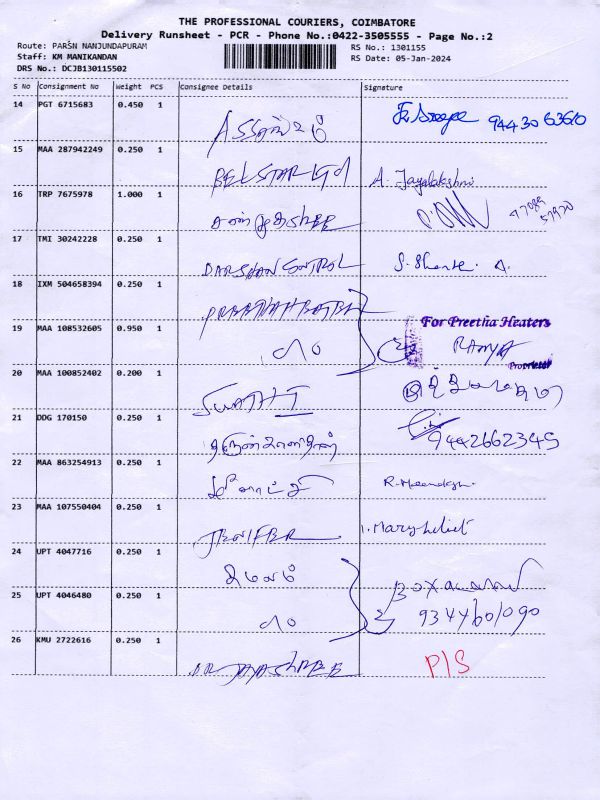 THE PROFESSIONAL COURIERS, COIMBATORE
Delivery Runsheet - PCR - Phone No.:0422-3505555 - Page No.:2
Route: PARSN NANJUNDAPURAM
RS No.: 1301155
Staff: KM MANIKANDAN
RS Date: 05-Jan-2024
DRS No.: DCJB130115502
S No Consignment No Weight PCS Consignee Details Signature
14 PGT 6715683 0.450 1
94430 63610
15 MAA 287942249 0.250 1
BELSTAR A. Jayalakshmi
16 TRP 7675978 1.000 1
17 TMI 30242228 0.250 1
DARSHAN CONTROL
18 IXM 504658394 0.250 1
19 MAA 108532605 0.950 1
For Preetha Heaters
RAMYA
Proprietor
20 MAA 100852402 0.200 1
SWATHI
21 DDG 170150 0.250 1
9442662345
22 MAA 863254913 0.250 1
23 MAA 107550404 0.250 1
JENIFER
24 UPT 4047716 0.250 1
கமலம்
25 UPT 4046480 0.250 1
26 KMU 2722616 0.250 1
DR JAYASHREE P/S